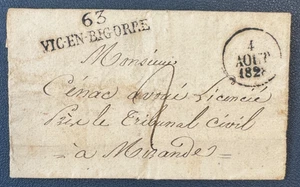 63
VIC-EN-BIGORRE
4
AOUT
182
Monsieur
Cénac avoué Licencié
Près le Tribunal Civil
à Mirande